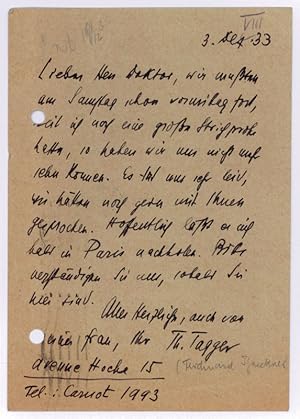 VIII
3. Dez. 33
Lieber Herr Doktor, wir mußten
am Samstag schon vormittag fort,
weil ich noch eine große Strichprobe
hatte, so haben wir uns nicht mehr
sehn können. Es tut uns sehr leid,
wir hätten noch gern mit Ihnen
gesprochen. Hoffentlich läßt es sich
bald in Paris nachholen. Bitte
verständigen Sie uns, sobald Sie
hier sind.
Alles Herzliche, auch von
meiner Frau, Ihr Th. Tagger
(Ferdinand Bruckner)
avenue Hoche 15
Tel.: Carnot 1993